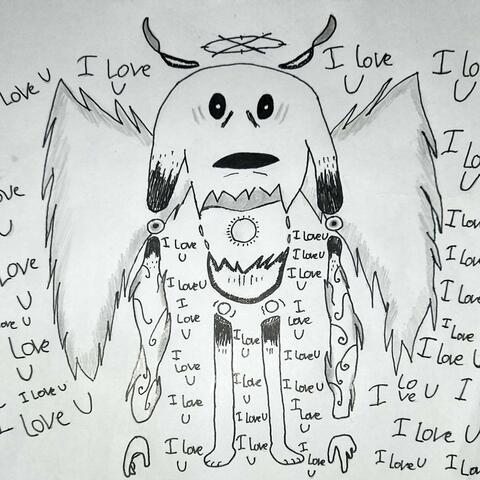 I Love
U
I Love
U
I Lo
U
Love U
I Lo
U
ove
U
I Love
U
I Love U
I Love U
I Love
I Love
I Love U
I Love
Love
U
I
Love
U
I
Love
U
I Love
ove U
Love U
Love
U
I Love U
I Love
I
Love
U
I Love U
I Love U
I Love U
I Love
U
I Love U
I Lo
ve U
I
I Love U
I Love
U
I Love U
I Love
U
I Love U
I Love U
I Love
U
I Love
U
I Love
U
I Love U
I Love U
I Lo